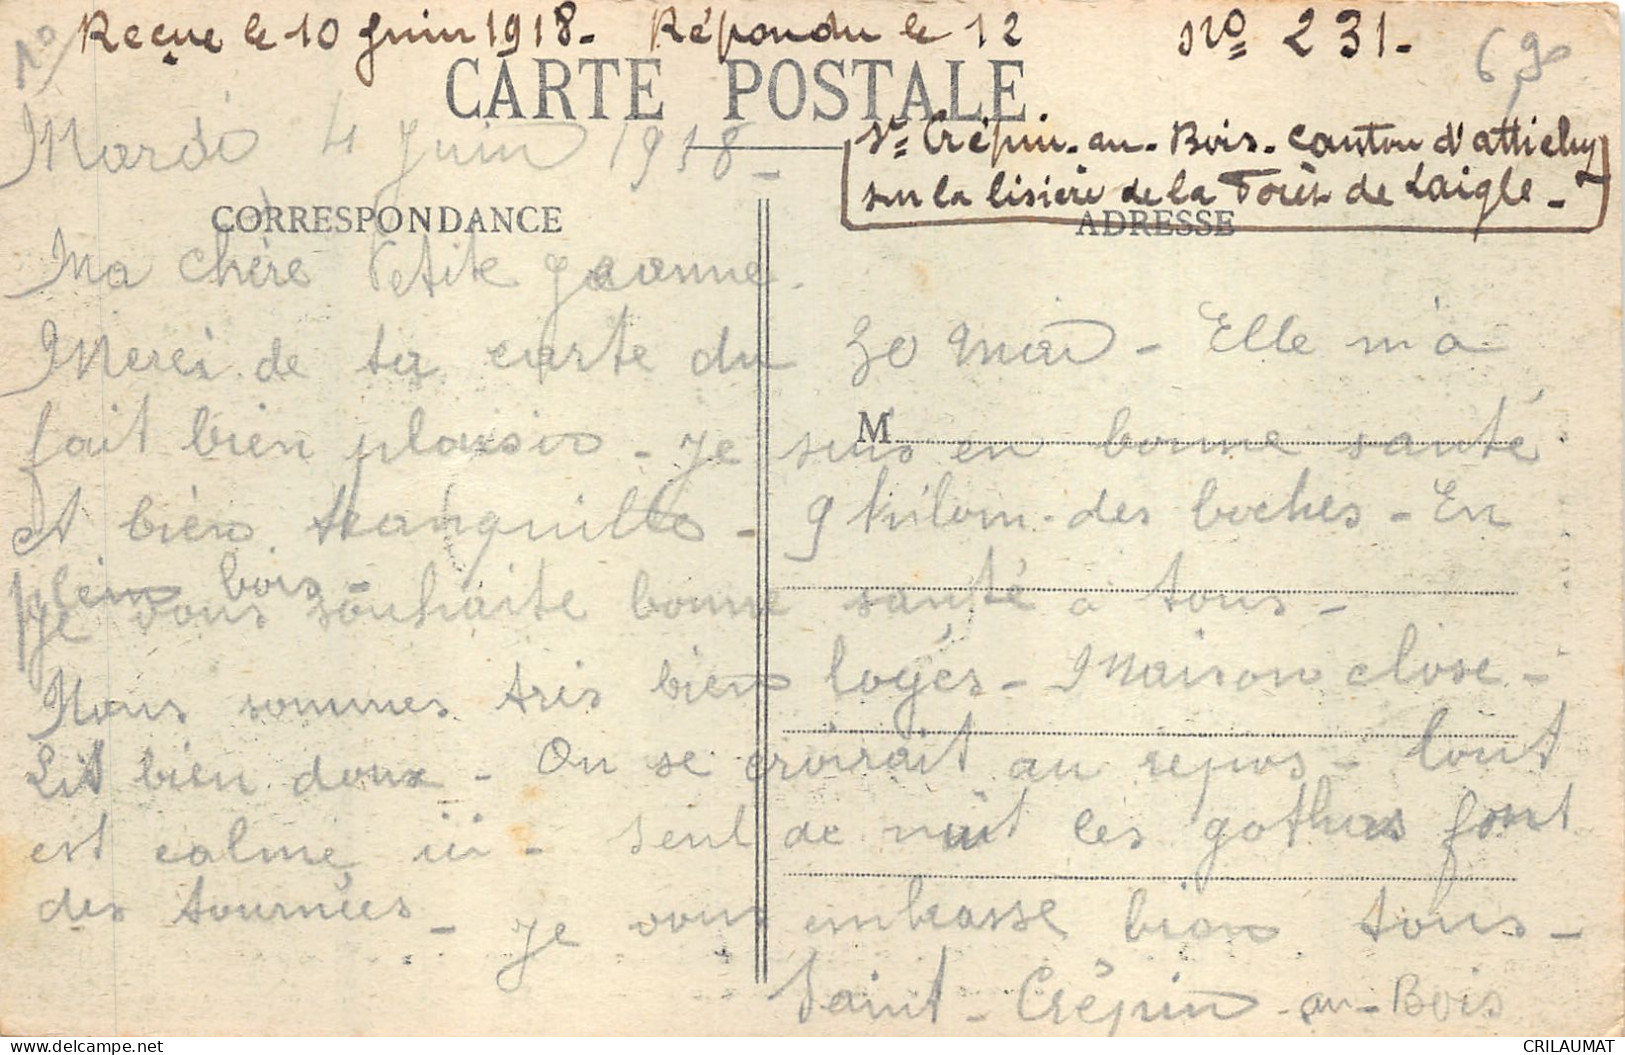 1º/ Reçue le 10 Juin 1918 - Répondu le 12 Nº 231 -
CARTE POSTALE
Mardi 4 Juin 1918 -
St Crépin-au-Bois - canton d'attichy
sur la lisière de la Forêt de Laigle -
CORRESPONDANCE
ADRESSE
Ma chère Petite Jeanne.
Merci de ta carte du 30 Mai - Elle m'a
M
fait bien plaisir - Je suis en bonne santé
et bien tranquille - 9 kilom. des boches - En
plein bois -
Je vous souhaite bonne santé à tous -
Nous sommes très bien logés - Maison close -
Lit bien doux - On se croirait au repos - Tout
est calme ici - Seul de nuit les gothas font
des tournées - Je vous embrasse bien tous -
Saint-Crépin-au-Bois
CRILAUMAT